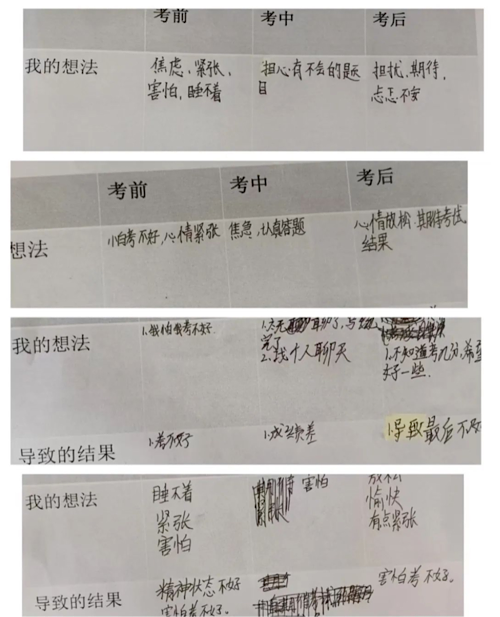 考前 考中 考后
我的想法 焦虑、紧张、 担心有不会的题 担忧、期待,
害怕,睡不着 目 忐忑不安
考前 考中 考后
想法 怕考不好,心情紧张 焦急,认真答题 心情放松 期待考试
结果
我的想法 1.我怕我考不好
完了 1.不知道考几分,希望
2.找个人聊天 好一些.
导致的结果 1.考不好 1.成绩差 1.导致最后不好
我的想法 睡不着 害怕 放松
紧张 愉快
害怕 有点紧张
导致的结果 精神状态不好 害怕考不好。
害怕考不好。